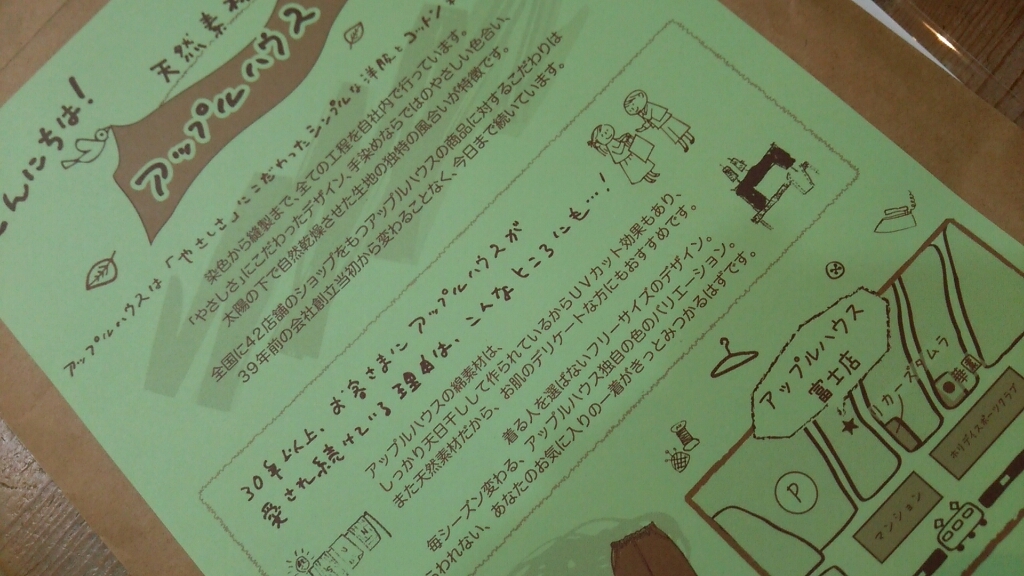 んにちは！
天然素材
アップルハウス
アップルハウスは「やさしさ」にこだわったシンプルな洋服と
染色から縫製まで、全ての工程を自社内で行っています。
「やさしさ」にこだわったデザイン、手染めならではのやさしい色合い、
太陽の下で自然乾燥させた生地の独特の風合いが特徴です。
全国に42店舗のショップをもつアップルハウスの商品に対するこだわりは
39年前の会社創立当初から変わることなく、今日まで続いています。
30年以上、お客さまにアップルハウスが
愛され続けている理由は、こんなところにも…！
アップルハウスの綿素材は、
しっかり天日干しして作られているからUVカット効果もあり、
また天然素材だから、お肌のデリケートな方にもおすすめです。
着る人を選ばないフリーサイズのデザイン。
毎シーズン変わる、アップルハウス独自の色のバリエーション。
らわれない、あなたのお気に入りの一着がきっとみつかるはずです。
アップルハウス
富士店
P
マンション
ホリデイスポーツクラブ